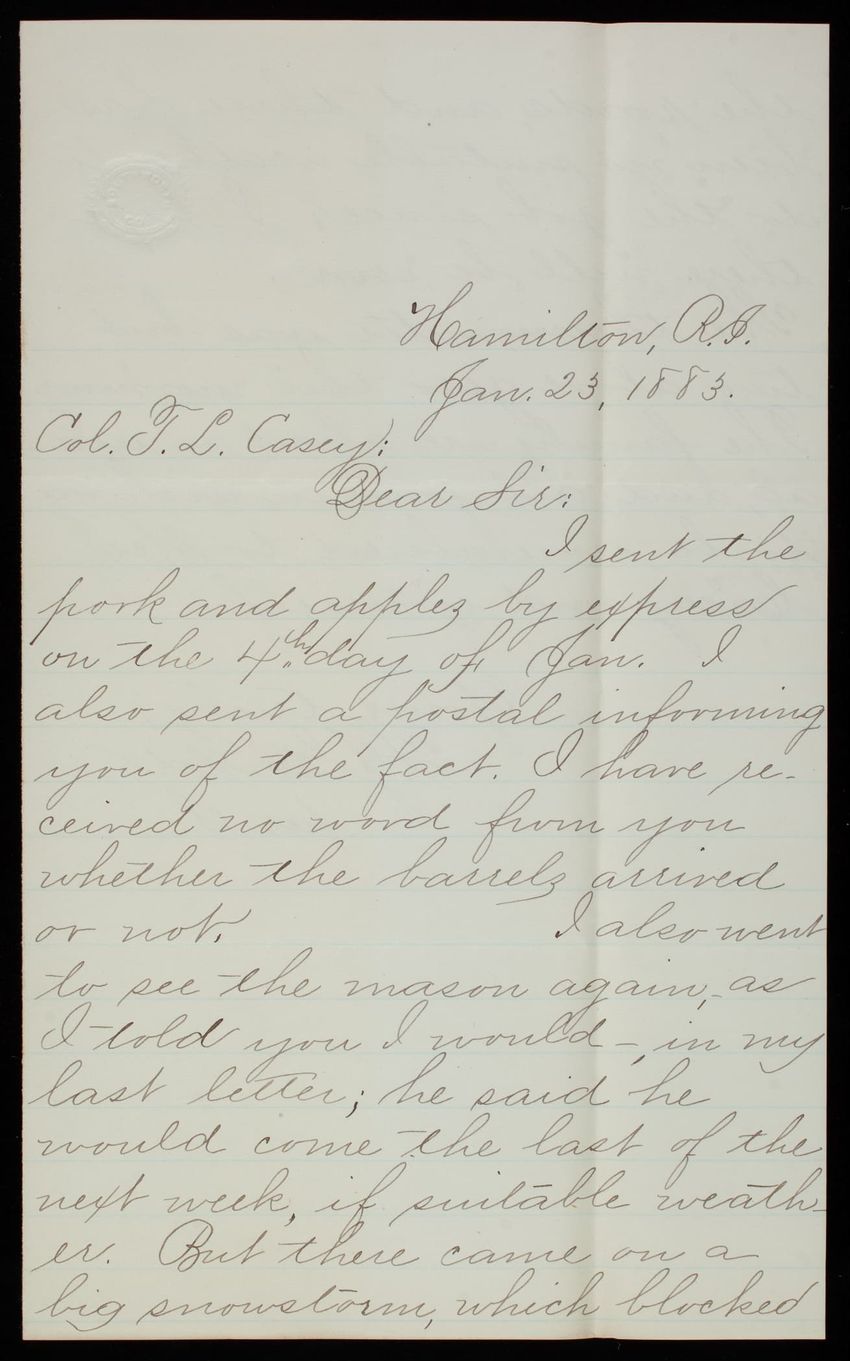 Hamilton, R.I.
Jan. 23, 1883.
Col. T. L. Casey:
Dear Sir:
I sent the
pork and apples by express
on the 4th. day of Jan. I
also sent a postal informing
you of the fact. I have re-
ceived no word from you
whether the barrels arrived
or not. I also went
to see the mason again,-as
I told you I would -, in my
last letter; he said he
would come the last of the
next week, if suitable weath-
er. But there came on a
big snowstorm, which blocked